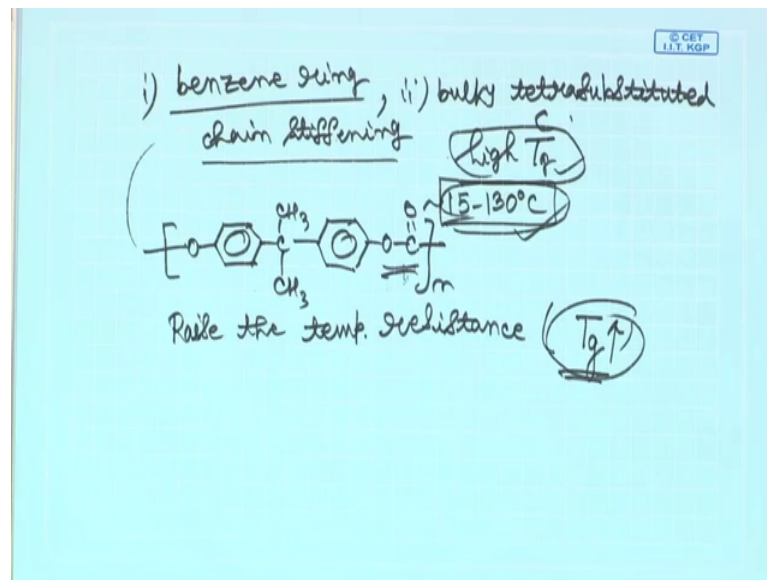 © CET
I.I.T. KGP
i) benzene ring, ii) bulky tetrasubstituted
chain stiffening C
high Tg
15-130°C
CH3 O
[O C O-C]m
CH3
Raise the temp. resistance (Tg↑)